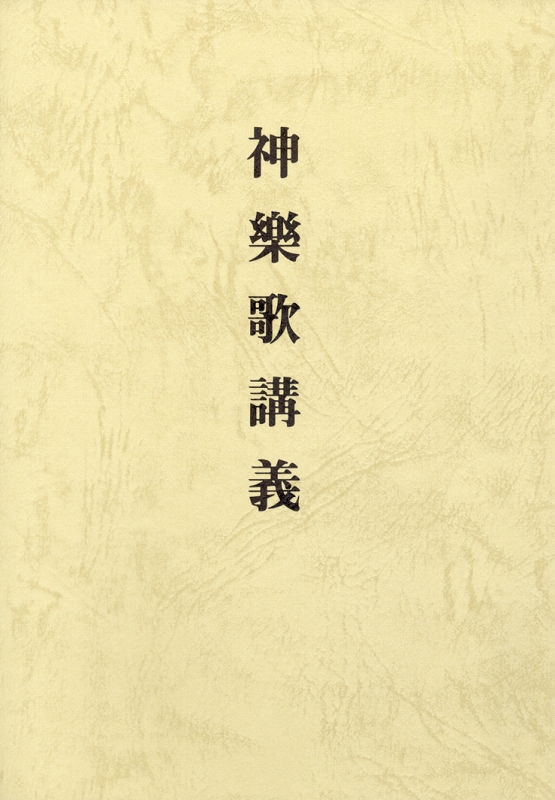 神樂歌講義